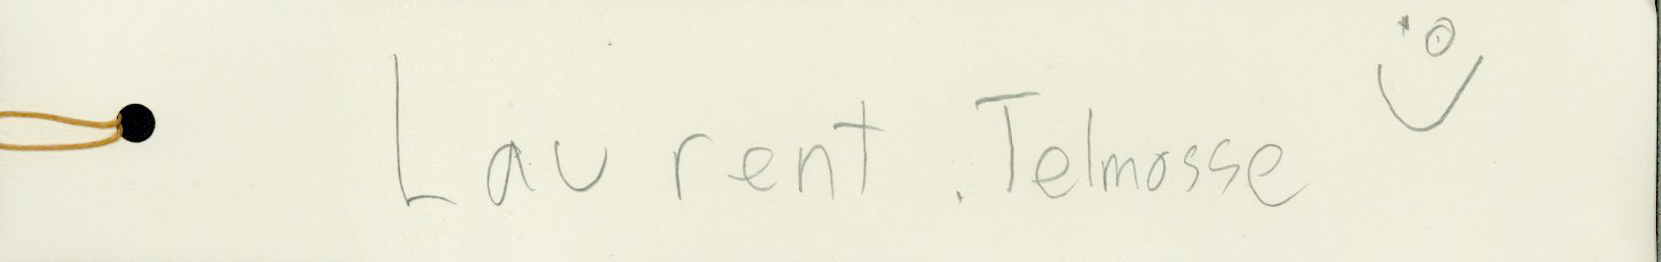 Laurent .Telmosse